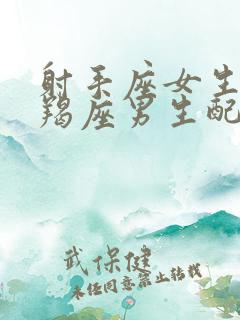 射手座女生
羯座男生配
武保健
未经同意禁止转载